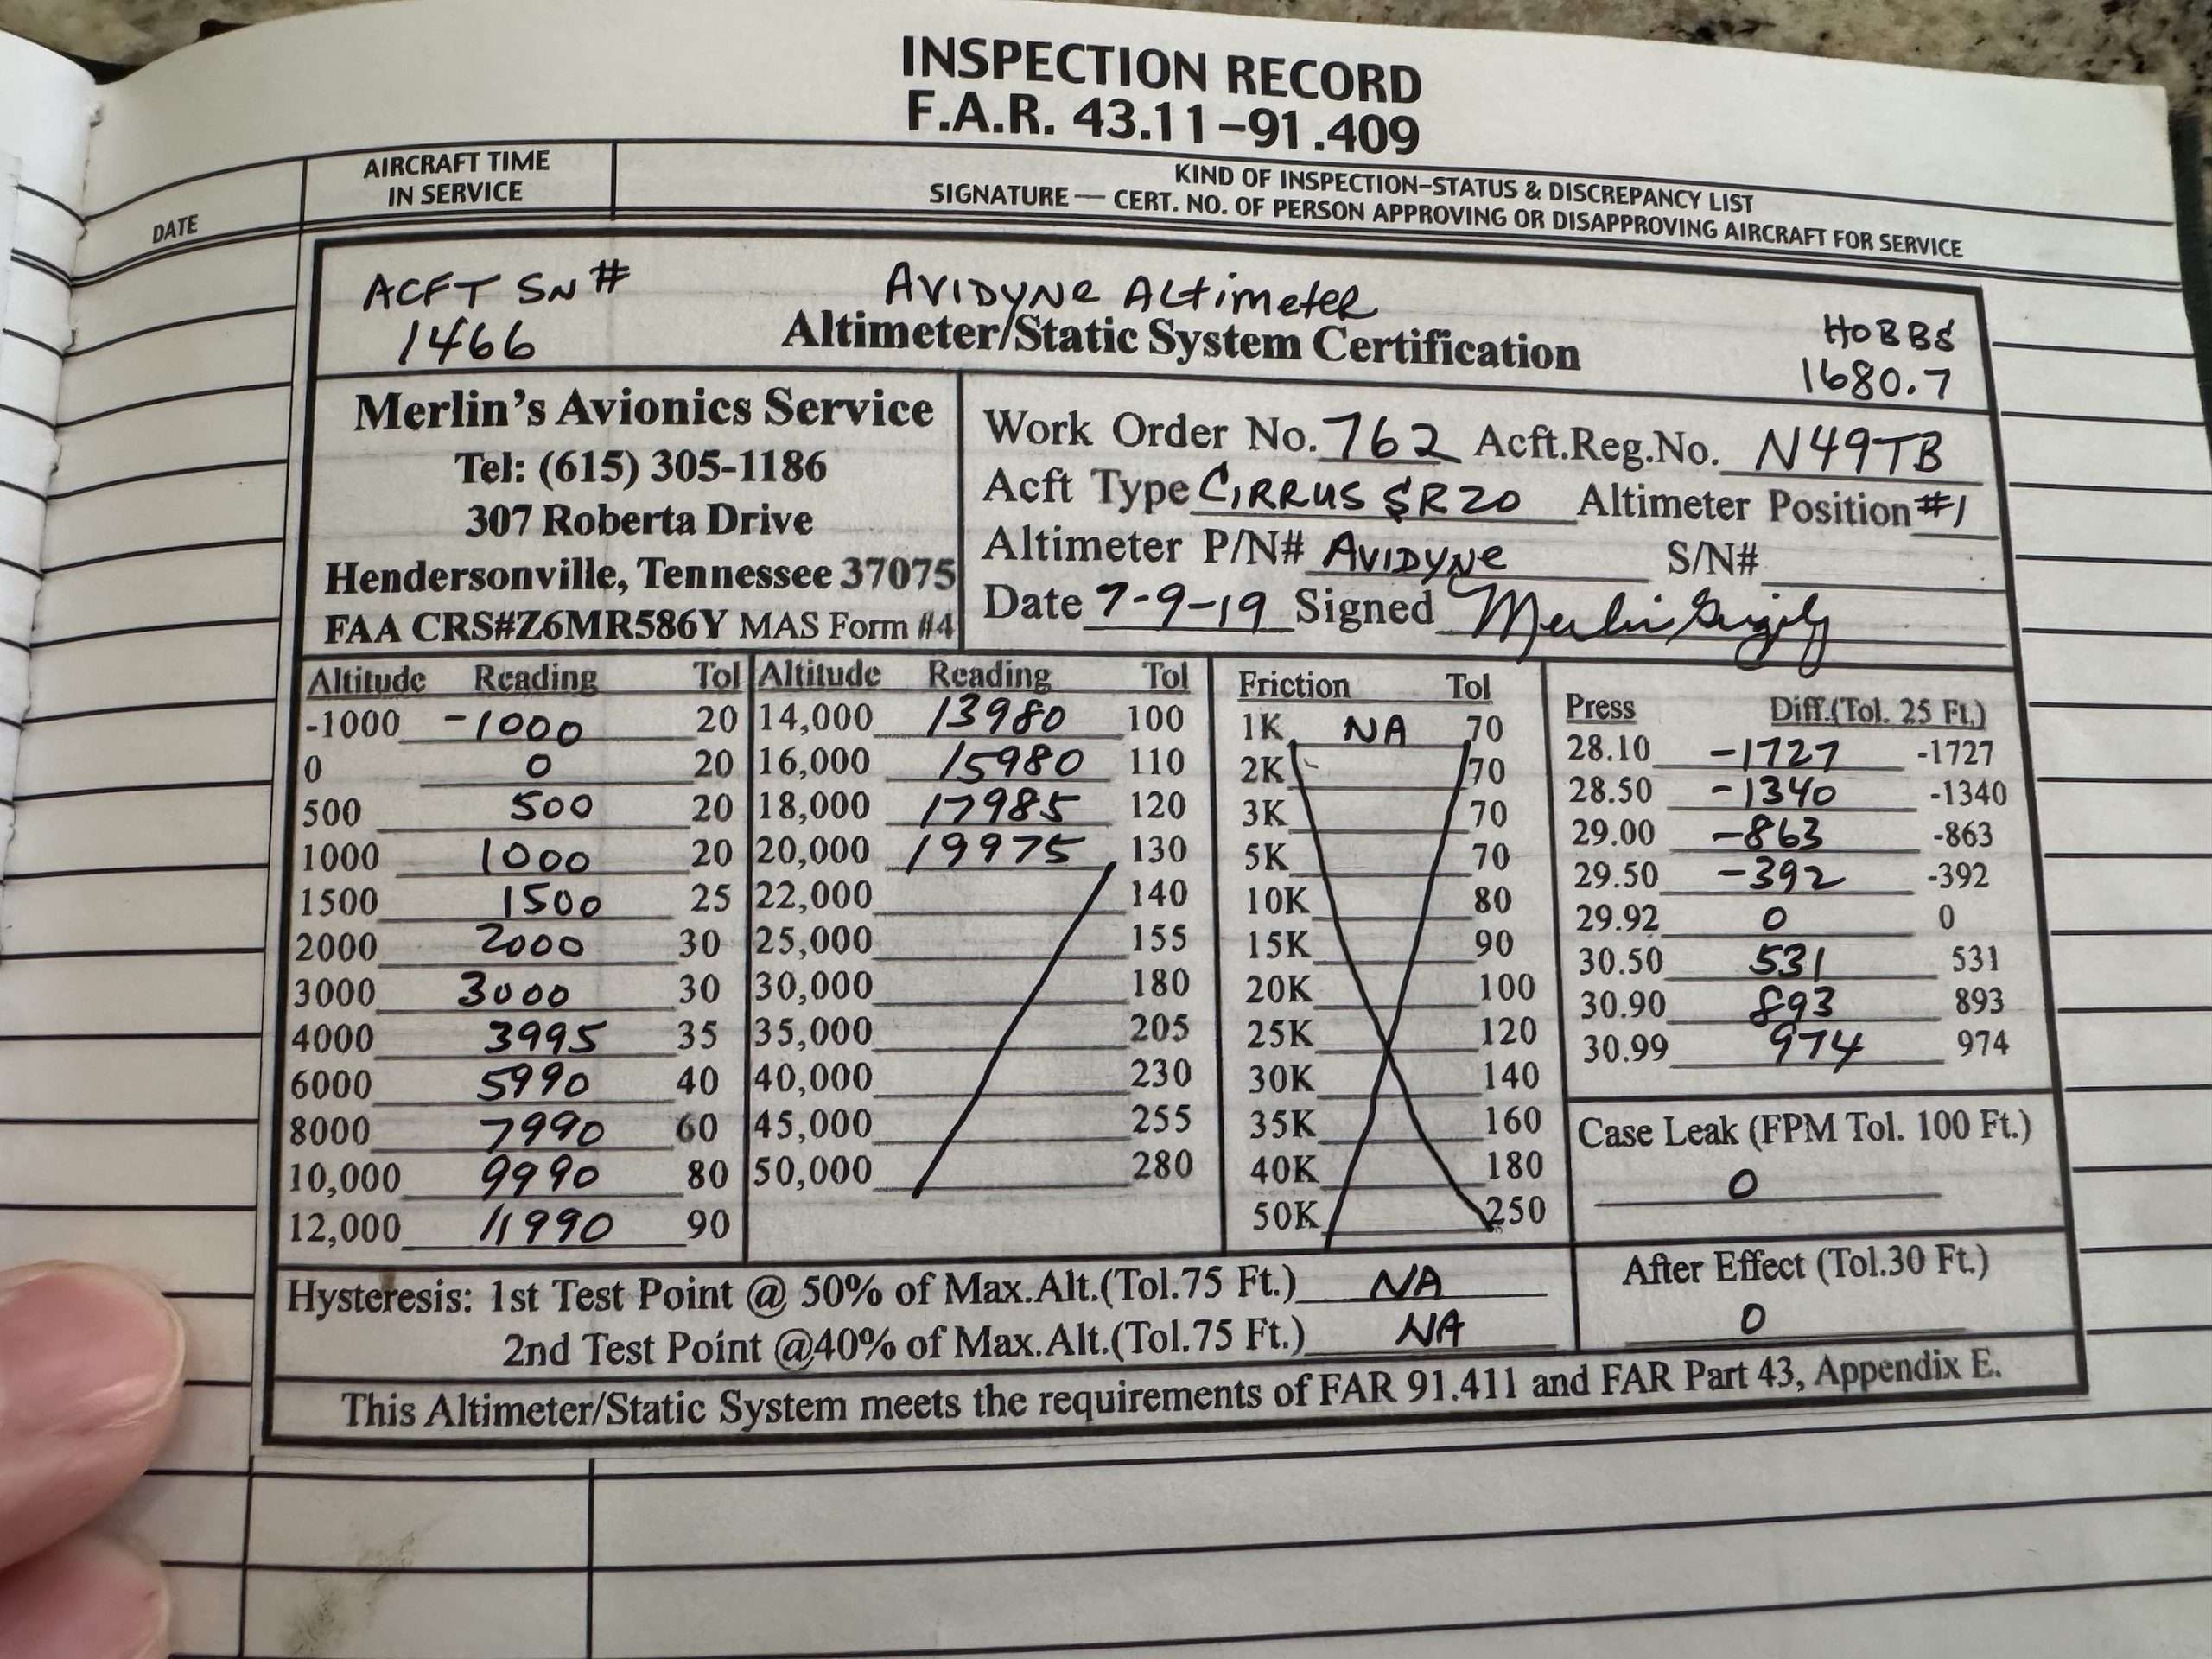 INSPECTION RECORD
F.A.R. 43.11–91.409
DATE
AIRCRAFT TIME
IN SERVICE
KIND OF INSPECTION–STATUS & DISCREPANCY LIST
SIGNATURE — CERT. NO. OF PERSON APPROVING OR DISAPPROVING AIRCRAFT FOR SERVICE
ACFT SN #
1466
AVIDYNE ALtimeteR
Altimeter/Static System Certification
HOBBS
1680.7
Merlin's Avionics Service
Tel: (615) 305-1186
307 Roberta Drive
Hendersonville, Tennessee 37075
FAA CRS#Z6MR586Y MAS Form #4
Work Order No. 762 Acft.Reg.No. N49TB
Acft Type CIRRUS SR20 Altimeter Position #1
Altimeter P/N# AVIDYNE S/N#
Date 7-9-19 Signed Merlin
Altitude Reading Tol
-1000 -1000 20
0 0 20
500 500 20
1000 1000 20
1500 1500 25
2000 2000 30
3000 3000 30
4000 3995 35
6000 5990 40
8000 7990 60
10,000 9990 80
12,000 11990 90
Altitude Reading Tol
14,000 13980 100
16,000 15980 110
18,000 17985 120
20,000 19975 130
22,000 140
25,000 155
30,000 180
35,000 205
40,000 230
45,000 255
50,000 280
Friction Tol
1K NA 70
2K 70
3K 70
5K 70
10K 80
15K 90
20K 100
25K 120
30K 140
35K 160
40K 180
50K 250
Press Diff.(Tol. 25 Ft.)
28.10 -1727 -1727
28.50 -1340 -1340
29.00 -863 -863
29.50 -392 -392
29.92 0 0
30.50 531 531
30.90 893 893
30.99 974 974
Case Leak (FPM Tol. 100 Ft.)
0
Hysteresis: 1st Test Point @ 50% of Max.Alt.(Tol.75 Ft.) NA
2nd Test Point @40% of Max.Alt.(Tol.75 Ft.) NA
After Effect (Tol.30 Ft.)
0
This Altimeter/Static System meets the requirements of FAR 91.411 and FAR Part 43, Appendix E.